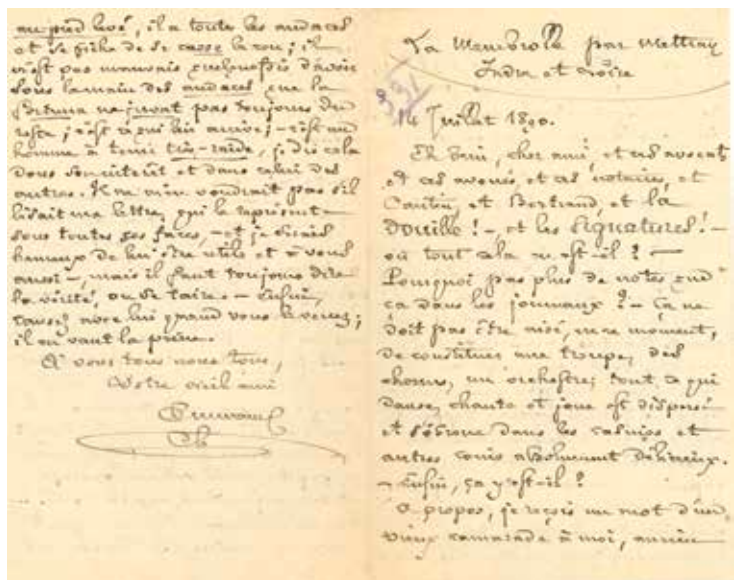 au pied levé, il a toutes les audaces
et se fiche de se casser le cou ; il
n'est pas mauvais quelquefois d'avoir
sous la main des audaces que la
ne pas toujours du
reste ; c'est à qui lui arrive ; – c'est un
homme à tenir très-raide, je dis cela
dans son intérêt et dans celui des
autres. Il ne m'en voudrait pas s'il
lisait ma lettre, qui le représente
sous toutes ses faces, – et je serais
heureux de lui être utile et à vous
aussi –, mais il faut toujours dire
la vérité, ou se taire – enfin,
causez avec lui quand vous le verrez ;
il en vaut la peine.
A vous tous nous tous,
Votre vieil ami
Ch
La Membrolle par Mettray
Indre et Loire
331
14 Juillet 1890.
Eh bien, cher ami, et ces avocats
et ces avoués, et ces notaires, et
et Bertrand, et la
Douille ! – et les Signatures ! –
où tout cela en est-il ? –
Pourquoi pas plus de notes que
ça dans les journaux ? – Ça ne
doit pas être aisé, en ce moment,
de constituer une troupe, des
chœurs, un orchestre ; tout ce qui
danse, chante et joue est dispersé
et dans les casinos et
autres coins absolument
– enfin, ça y est-il ?
A propos, je reçois un mot d'un
vieux camarade à moi, ancien